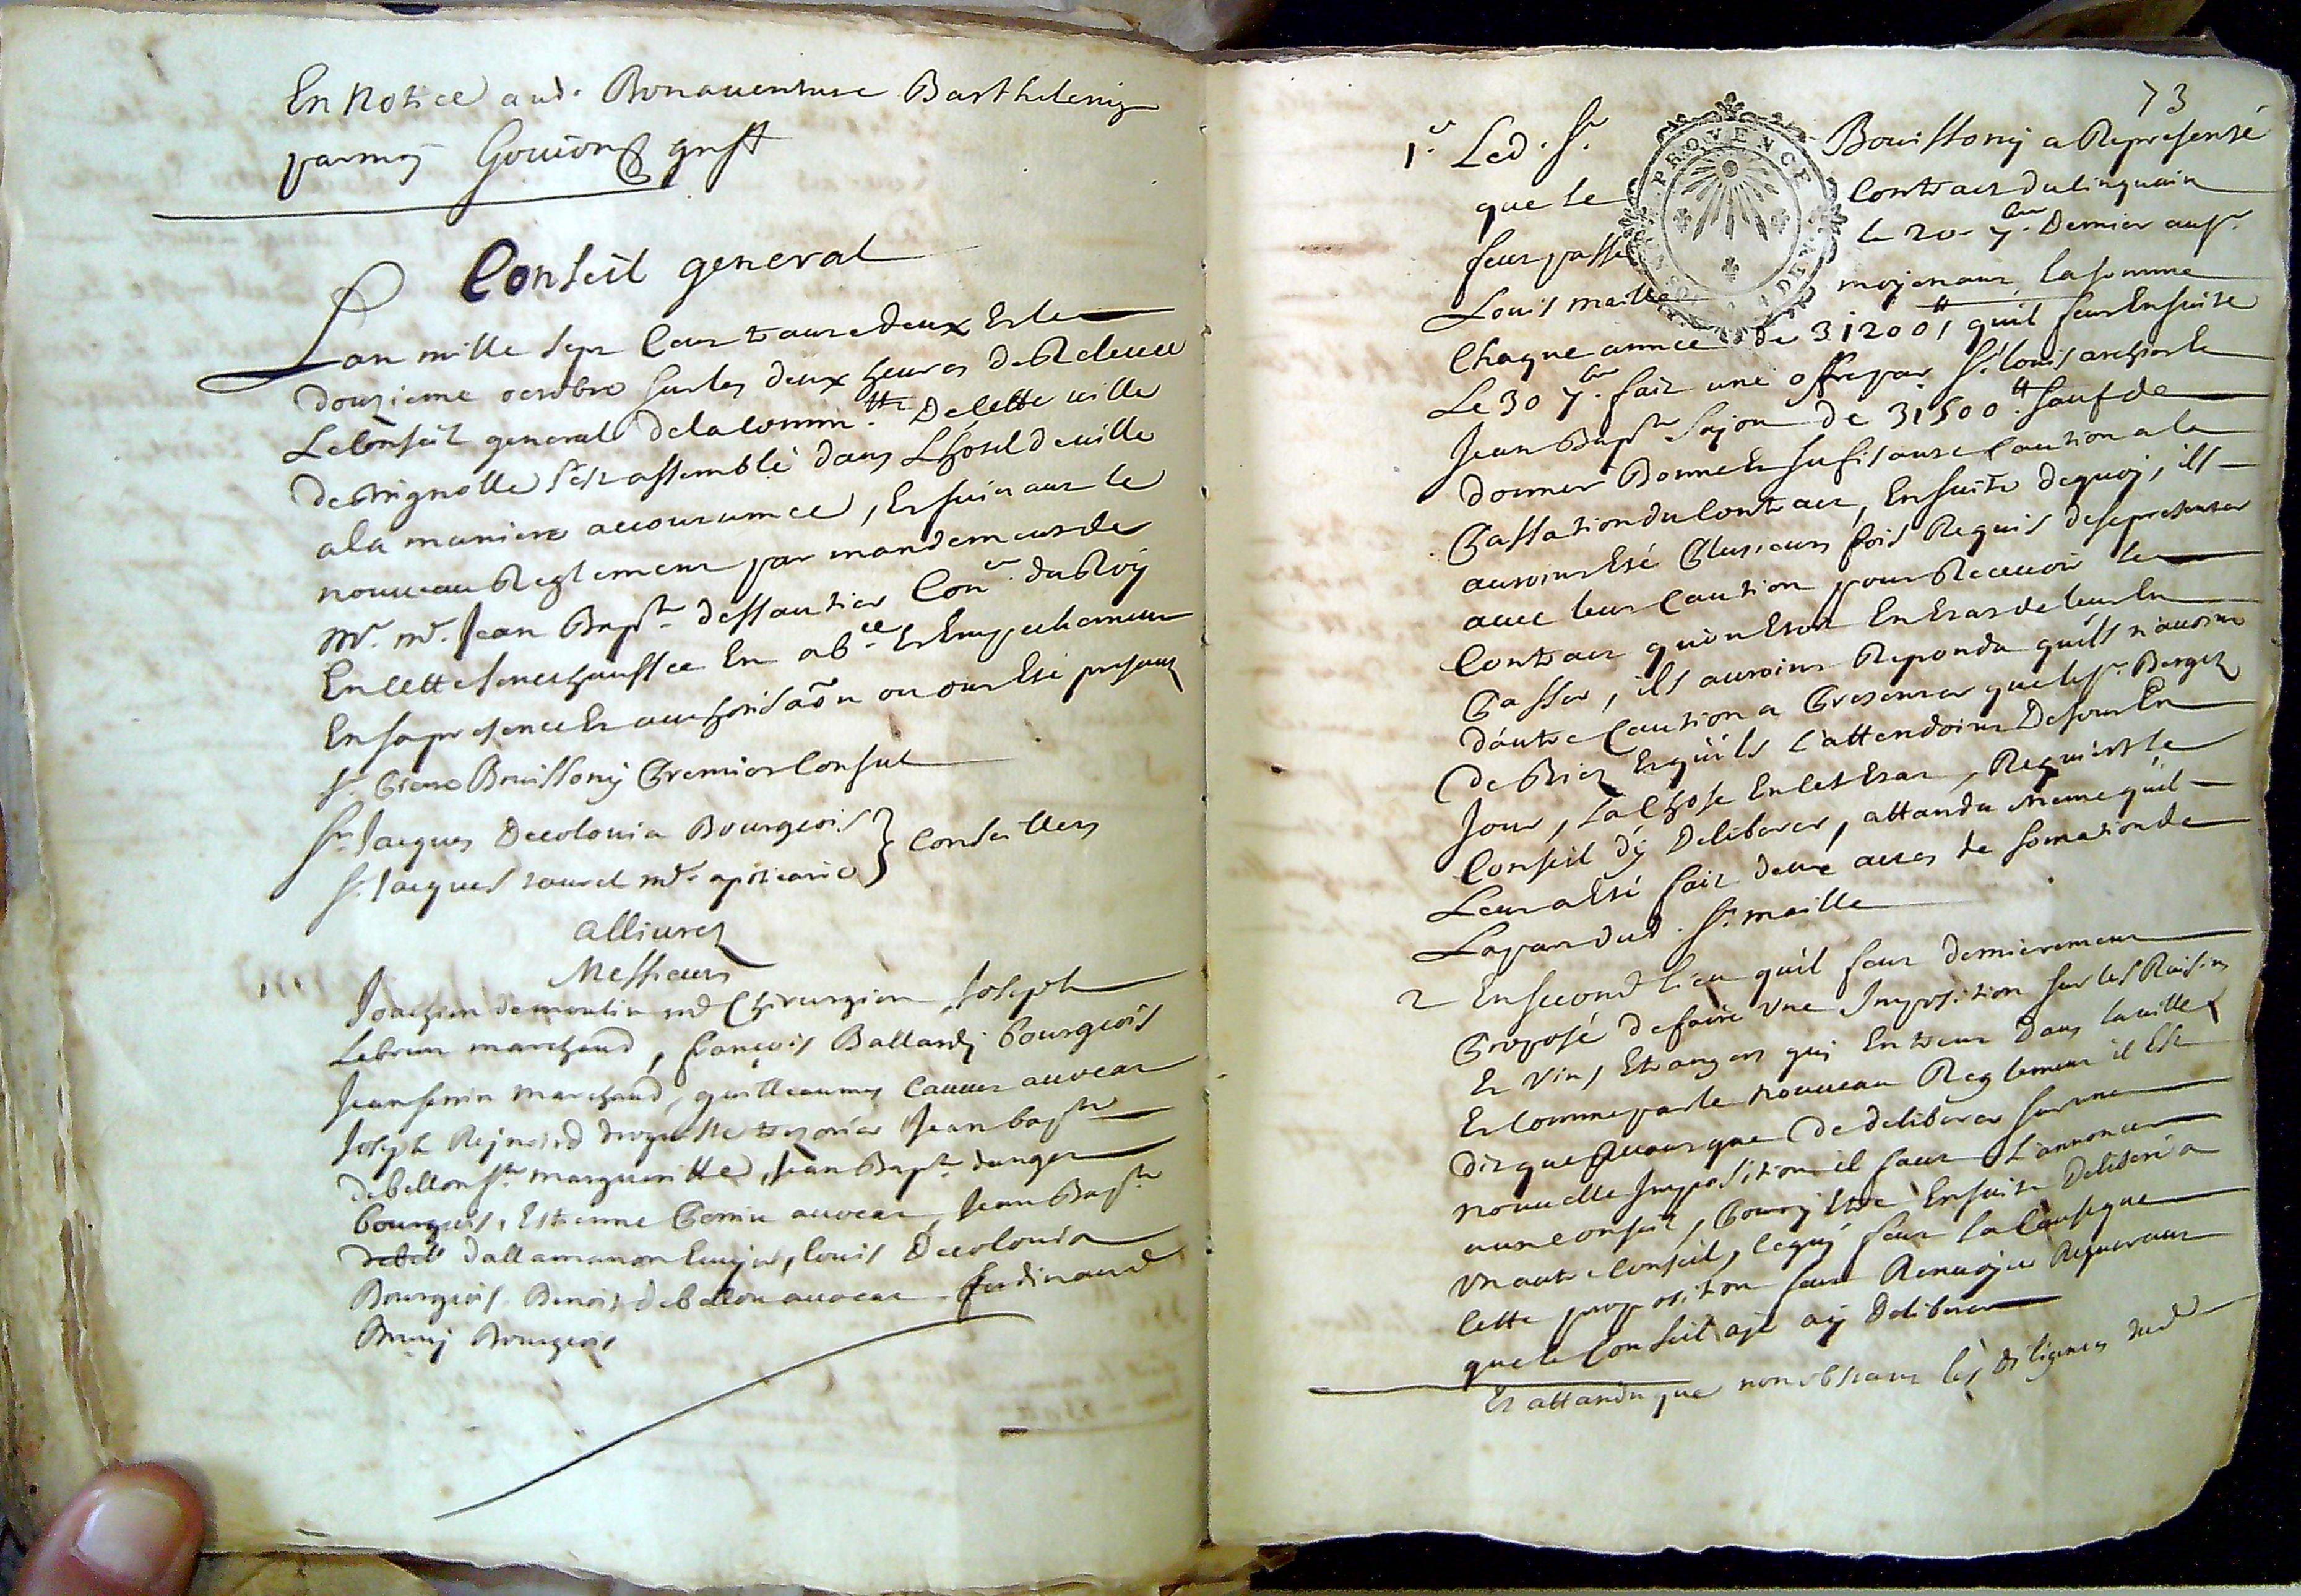 En Notice aud. Bonauenture Barthelemy
par moy Gouion greff
Conseil general
Lan mille sept cent trante deux Et le
douzieme octobre sur les deux heures de Releuee
Le Conseil general de la comm.tté De cette ville
de Brignolle s'est assemblé dans L'hotel de ville
a la maniere accoutumee, Et suivant le
nouveau Reglement par mandement de
Mr. me. Jean Bapte. dessautier Con.er du Roy
En cette senechaussee En abce. Et Empechement
En sa presence Et authorisaõn ou ont Eté presents
sr. Piere Bouissony Premier Consul
sr. Jacques Decolonia Bourgeois
sr. Jacques tourel me. apoticaire } Conseillers
alliurez
Messieurs
Joachim demoulin me Chirurgien Joseph
Lebrun marchand, françois Ballardy bourgeois
Jean senin marchand, guilleaumes auocat
Joseph Rejnoird droguiste trezorier Jean bapte
debellon ste. margueritte, Jean Bapte. danger
bourgeois, Estienne Perrin auocat, Jean Bapte
debell dallamanon Ecuyer, louis Decolonia
Bourgeois Benoit debellon auocat ferdinand
Bruny Bourgeois
73
1er. Led. Sr. Bouissony a Representé
que le Contract du linquain
feut passé le 20. 7bre. Dernier au sr.
Louis maille moyenant la somme
Chaque annee de 31200tt quil feut Ensuite
Le 30 7bre. fait une offre par Sr. louis
Jean Bapte Sajon de 31500tt. sauf de
donner Bonne Et sufisante Caution a la
Passation du Contract, Ensuite dequoy, ils
auroint Eté Plusieurs fois Requis de se presenter
auec leur Caution pour Receuoir le
Contract qu'on Etoit En Etat de leur En
Passer, ils auroint Repondu quils n'auoint
dautre Caution a Presenter que le sr. Berger
Et qu'ils l'attendoint De jour En
Jour, La Chose En cet Etat, Requiert le
Conseil d'y Deliberer, attandu meme quil
Leur a Eté fait deux actes de somation de
La part dud. Sr. maille
2 En second lieu quil feut dernierement
Proposé de faire Une Imposition sur les Raisins
Et Vins Etrangers qui Entrent Dans la ville
Et Comme par le nouveau Reglement il Est
dit que auant que De deliberer sur une
nouuelle Imposition il faut L'annoncer
a un conseil, Pour y Etre Ensuite Deliberé a
Un autre Conseil, feut la Cause que
Cette proposition feut Renuoyee Requerant
que le Conseil aye a y Deliberer
Et attandu que nonobstant les diligences dud
PROVENCE